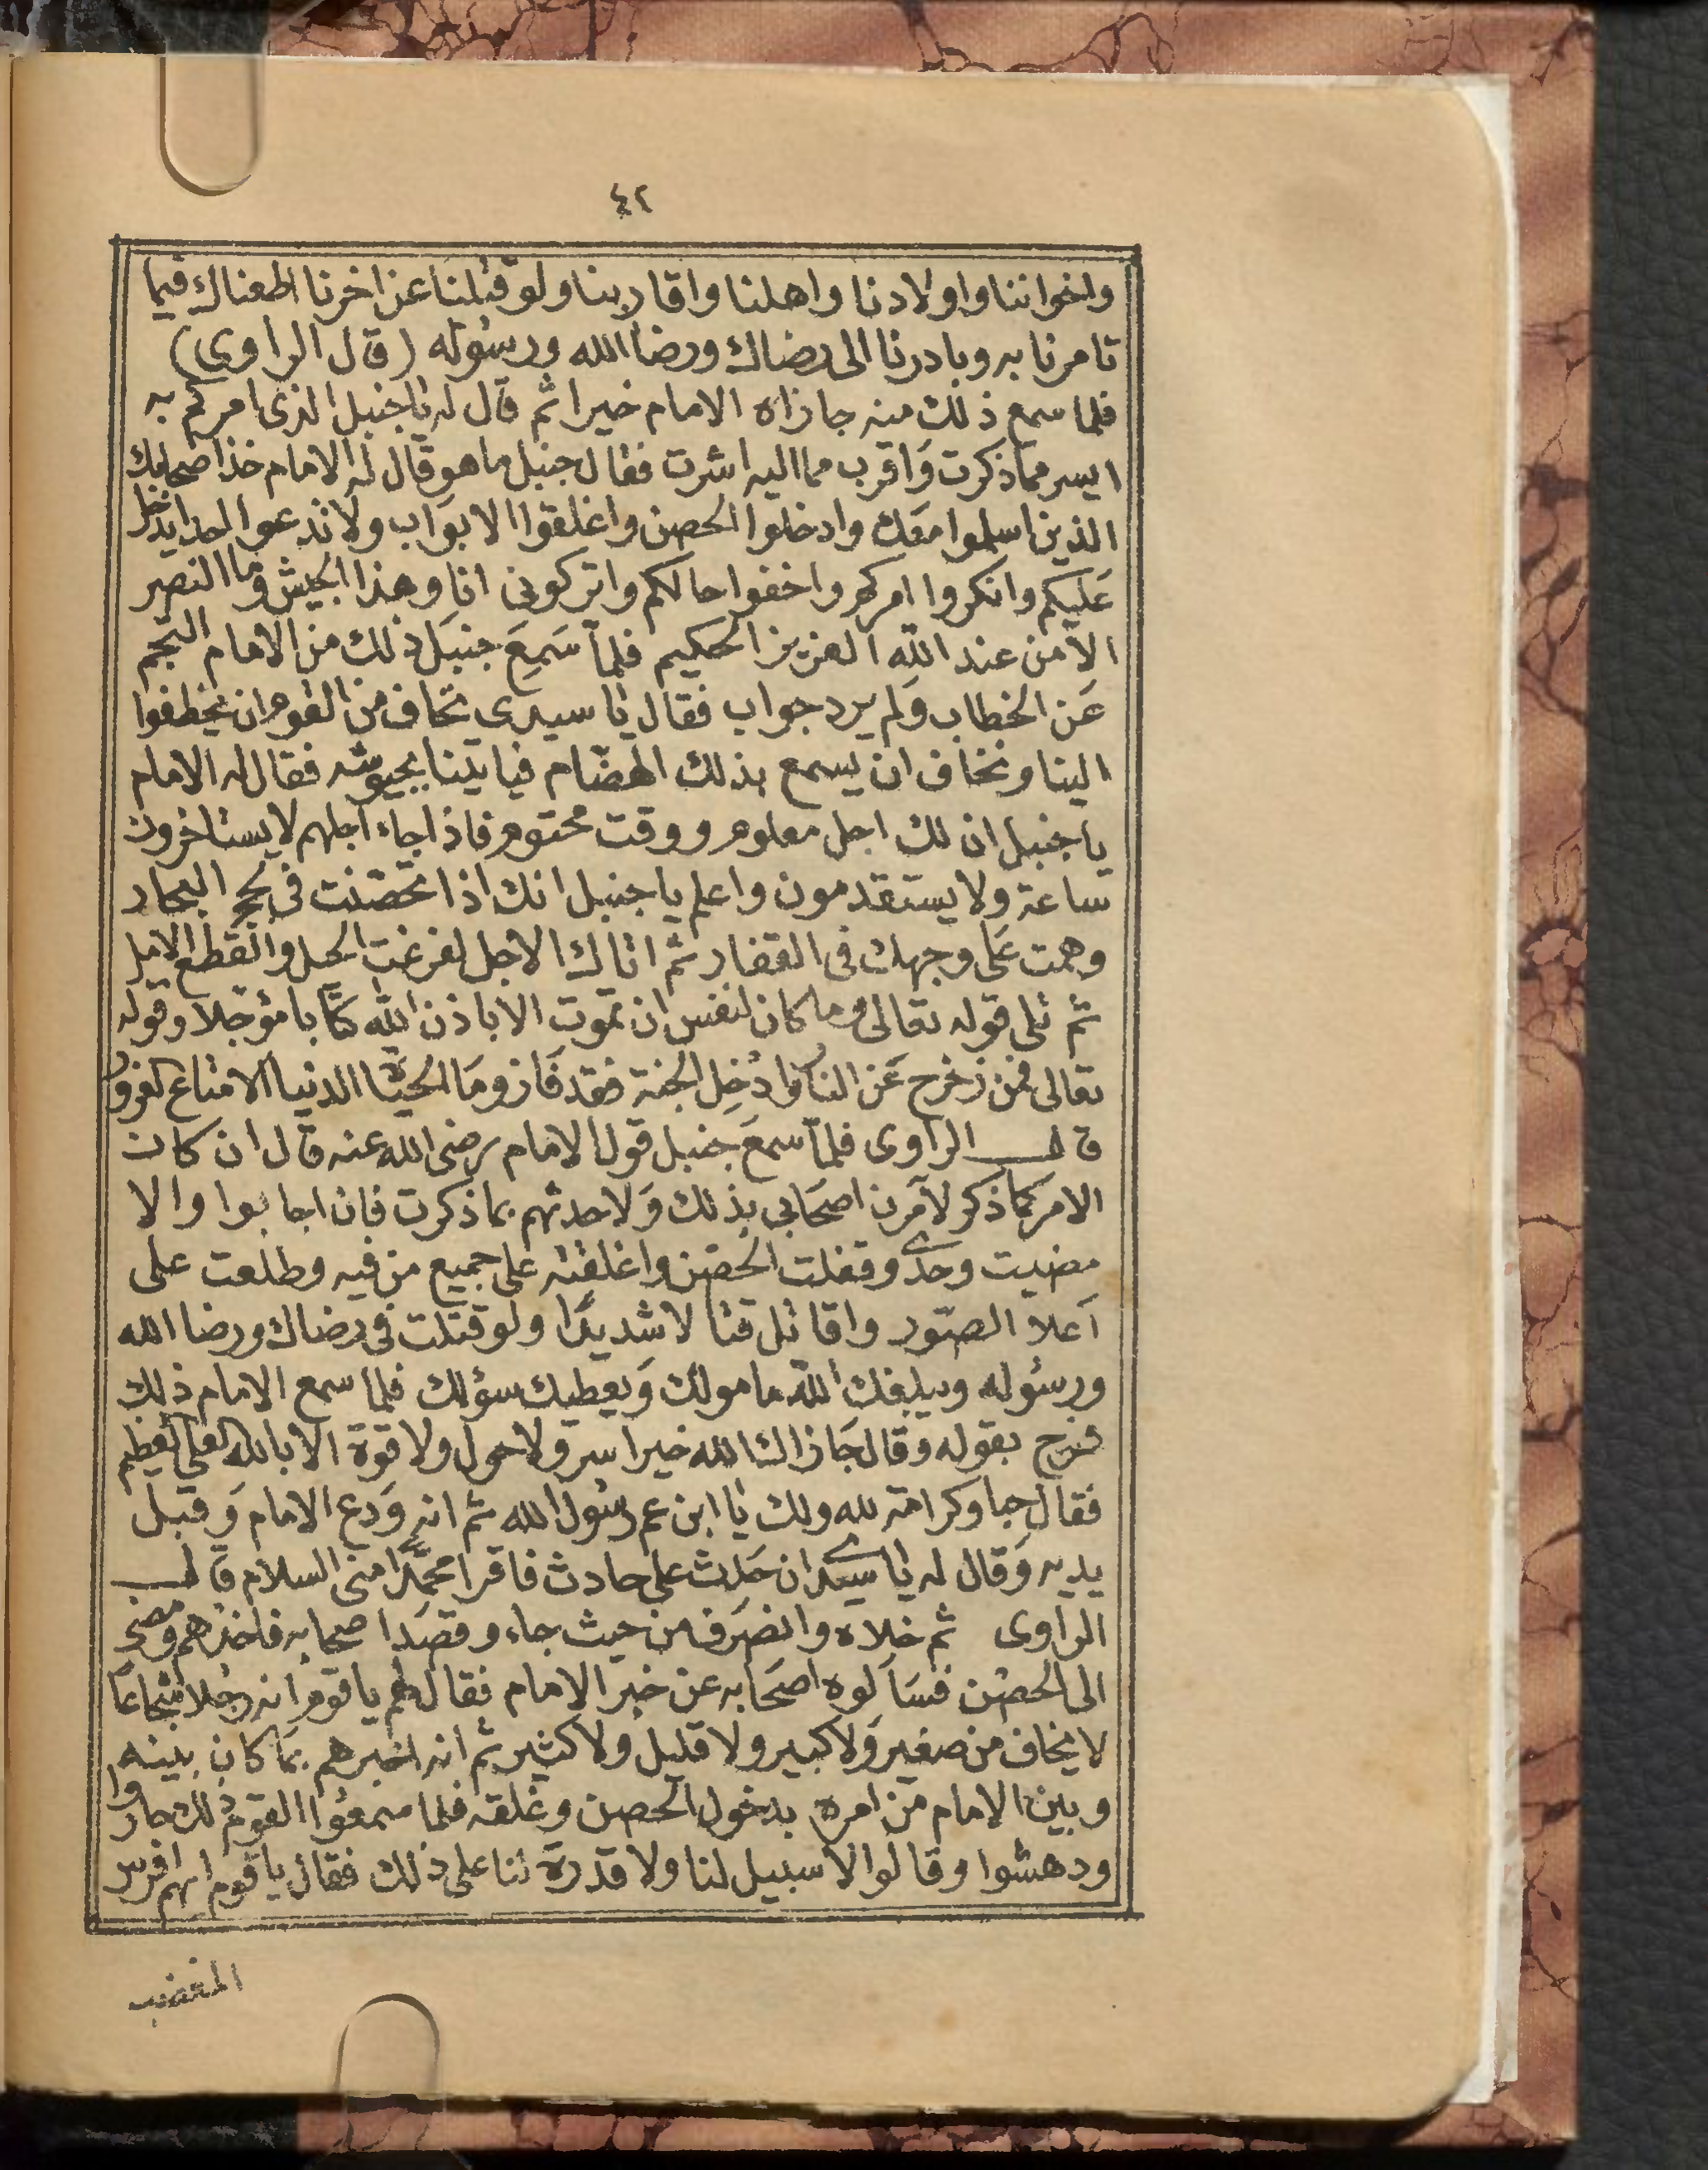 ٤٢
واخواننا واولادنا واهلنا واقاربنا ولو قبلنا عن اخرنا اطعناك فيما
تامرنا به وبادرنا الى رضاك ورضا الله ورسوله (قال الراوى)
فلما سمع ذلك منه جازاه الامام خيرا ثم قال له يا جنبل الذى امركم به
ايسر مما ذكرت وَاقرب مما اليه اشرت فقال جنبل ما هو قال له الامام خذ اصحابك
الذين اسلموا معك وادخلوا الحصن واغلقوا الابوَاب ولا تدعوا احدا يدخل
عَليكم وانكروا امركم واخفوا حالكم واتركونى انا وهذا الجيش وما النصر
الا من عند اللّه العزيز الحكيم فلمّا سَمِعَ جنبَل ذلك من الامام التجم
عَن الخطاب وَلم يرد جواب فقال يا سيدى نخاف من القوم ان يخطفوا
الينا ونخاف ان يسمع بذلك الهضّام فياتينا بجيوشه فقال له الامام
يا جنبل ان لك اجل معلوم ووقت محتوم فاذا جاء اجلهم لا يستاخرون
ساعة ولا يستقدمون واعلم يا جنبل انك اذا تحصّنت فى لجج البحار
وهمت عَلى وجهك فى القفار ثم اتاك الاجل لفرغت الحيل وانقطع الامل
ثم تلى قوله تعالى وما كان لنفس ان تموت الا باذن اللّه كتَّابا مؤجلا وقوله
تعالى فمن زخزح عَن النار وَادُخِل الجنة فقد فَاز ومَا الحيَاة الدنيا الا متاع الغرور
قال الراوى فلمّا سمعَ جنبل قول الامام رضى الله عنه قال ان كان
الامر كما ذكر لآمرَن اصحَابى بذلك وَلاحدثهم بما ذكرت فان اجابوا والا
مضيت وحدى وقفلت الحصْن واغلقته على جميع من فيه وطلعت على
اَعلا الصّور واقاتل قتالا شديدًا ولو قتلت فى رضاك ورضا الله
ورسُوله ويبلغك اللّه مامولك وَيعطيك سؤلك فلما سمع الامام ذلك
فرح بقوله وقال جَازاك الله خيرا سر ولا حول ولا قوة الا بالله العلى العظيم
فقال حبا وكرامة لله ولك يا ابن عم رسُول الله ثم انه وَدع الامام وَقبل
يديه وَقال له يا سيدى ان حَدث على حادث فاقرا محمّدًا منى السلام قال
الراوى ثم خلاه وانصَرف من حيث جاء وقصَد اصحابه فاخذهم ومضى
الى الحصْن فسَاَلوه اصحَابه عن خبر الامام فقال لهم يا قوم انه رجُلا شجاعًا
لا يخاف من صغير وَلا كبير ولا قليل ولا كثير ثم انه اخبرهم بمَا كان بينه
وبين الامام من امره بدخول الحصن وغلقه فلما سمعُوا القوم ذلك حاروا
ودهشوا وقالوا لا سبيل لنا ولا قدرة لنا على ذلك فقال يا قوم انهم افرس
المغضب